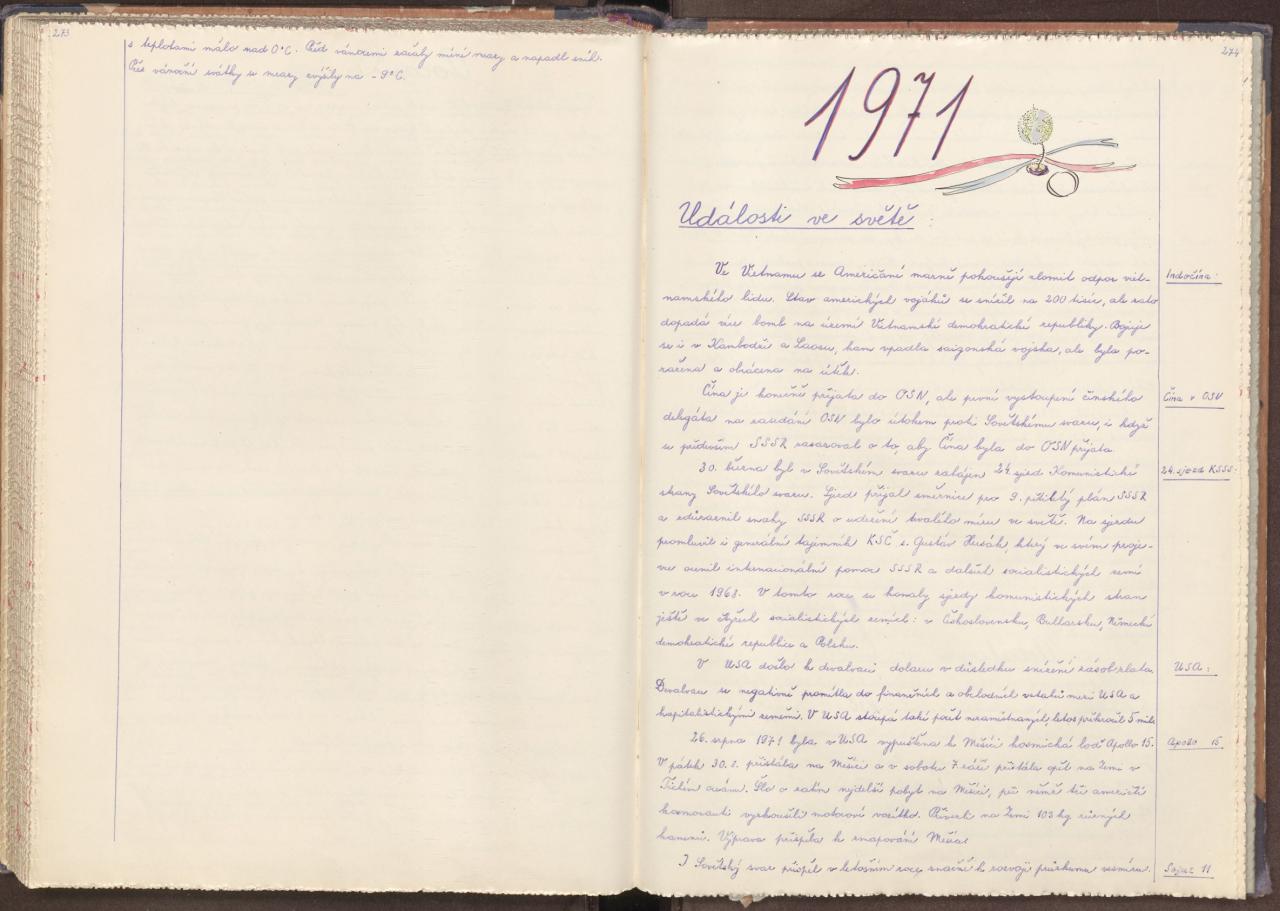 273
s teplotami málo nad 0°C. Před vánocemi začaly mírné mrazy a napadl sníh.
Přes vánoční svátky se mrazy zvýšily na - 9°C.
274
1971
Události ve světě :
Ve Vietnamu se Američané marně pokoušejí zlomit odpor viet-
Indočína:
namského lidu. Stav amerických vojáků se snížil na 200 tisíc, ale zato
dopadá více bomb na území Vietnamské demokratické republiky. Bojuje
se i v Kambodži a Laosu, kam vpadla saigonská vojska, ale byla po-
ražena a obrácena na útěk.
Čína je konečně přijata do OSN, ale první vystoupení čínského
Čína v OSN
delegáta na zasedání OSN bylo útokem proti Sovětskému svazu, i když
se především SSSR zasazoval o to, aby Čína byla do OSN přijata.
30. března byl v Sovětském svazu zahájen 24. sjezd Komunistické
24. sjezd KSSS:
strany Sovětského svazu. Sjezd přijal směrnice pro 9. pětiletý plán SSSR
a zdůraznil snahy SSSR o udržení trvalého míru ve světě. Na sjezdu
promluvil i generální tajemník KSČ s. Gustáv Husák, který ve svém proje-
vu ocenil internacionální pomoc SSSR a dalších socialistických zemí
v roce 1968. V tomto roce se konaly sjezdy komunistických stran
ještě ve čtyřech socialistických zemích: v Československu, Bulharsku, Německé
demokratické republice a Polsku.
V USA došlo k devalvaci dolaru v důsledku snížení zásob zlata.
USA:
Devalvace se negativně promítla do finančních a obchodních vztahů mezi USA a
kapitalistickými zeměmi. V USA stoupá také počet nezaměstnaných, letos překročil 5 mil.
26. srpna 1971 byla v USA vypuštěna k Měsíci kosmická loď Apollo 15.
Apollo 15
V pátek 30. přistála na Měsíci a v sobotu 7. září přistála opět na Zemi v
Tichém oceánu. Šlo o zatím nejdelší pobyt na Měsíci, při němž tři američtí
kosmonauti vyzkoušeli motorové vozítko. Přivezli na Zemi 103 kg různých
kamenů. Výprava přispěla k zmapování Měsíce.
I Sovětský svaz přispěl v letošním roce značně k rozvoji průzkumu vesmíru.
Sojuz 11